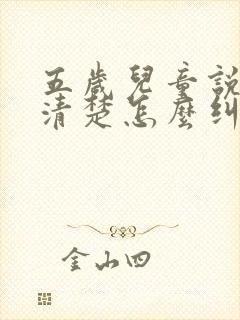 五歲兒童說
清楚怎麼糾
金山四